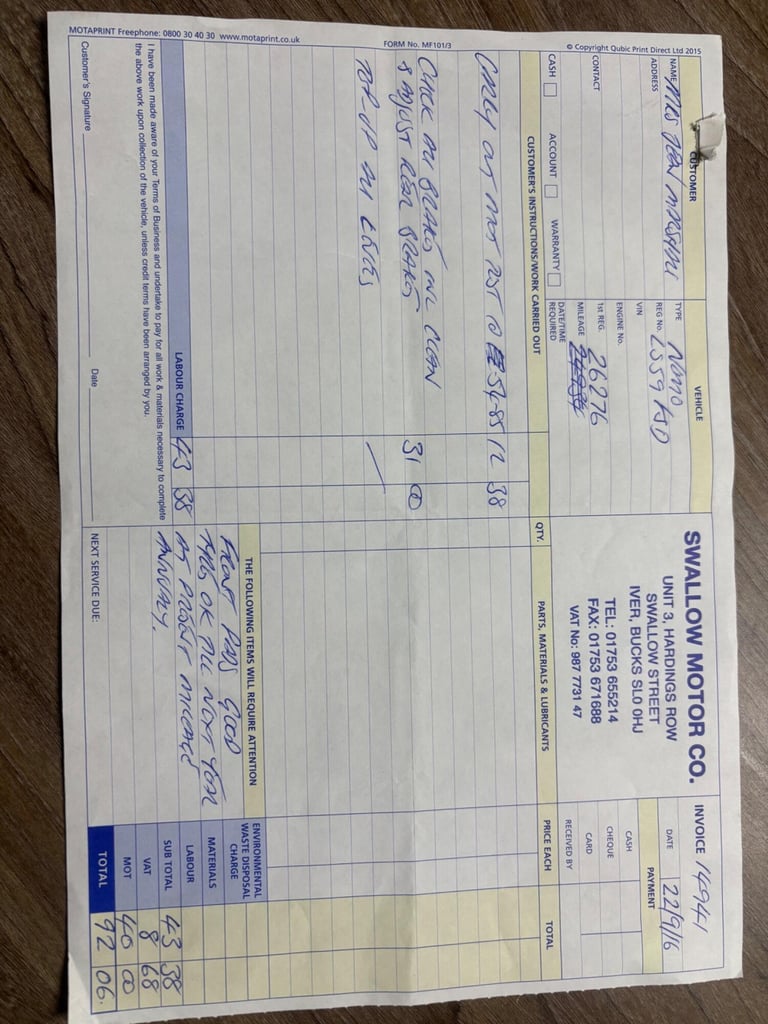 SWALLOW MOTOR CO.
UNIT 3, HARDINGS ROW
SWALLOW STREET
IVER, BUCKS SL0 0HJ
TEL: 01753 655214
FAX: 01753 671688
VAT No: 987 7731 47
INVOICE 14941
DATE 22/9/16
PAYMENT
CASH
CHEQUE
CARD
RECEIVED BY
CUSTOMER
NAME MRS JEAN MARSHALL
ADDRESS
CONTACT
CASH ACCOUNT WARRANTY
VEHICLE
TYPE
REG No. LS59
VIN
ENGINE No.
1st REG.
26276
MILEAGE
DATE/TIME REQUIRED
CUSTOMER'S INSTRUCTIONS/WORK CARRIED OUT
CARRY OUT MOT TEST @ 54-85 12 38
CHECK ALL BRAKES INC CLEAN
& ADJUST REAR BRAKES 31 00
TOP-UP ALL LEVELS
LABOUR CHARGE 43 38
QTY. PARTS, MATERIALS & LUBRICANTS PRICE EACH TOTAL
THE FOLLOWING ITEMS WILL REQUIRE ATTENTION
FRONT PADS GOOD
OK TILL NEXT YEAR
AT PRESENT MILEAGE
ANYWAY.
NEXT SERVICE DUE:
ENVIRONMENTAL WASTE DISPOSAL CHARGE
MATERIALS
LABOUR
SUB TOTAL 43 38
VAT 8 68
MOT 40 00
TOTAL 92 06.
I have been made aware of your Terms of Business and undertake to pay for all work & materials necessary to complete
the above work upon collection of the vehicle, unless credit terms have been arranged by you.
Customer's Signature Date
MOTAPRINT Freephone: 0800 30 40 30 www.motaprint.co.uk
FORM No. MF101/3
© Copyright Qubic Print Direct Ltd 2015